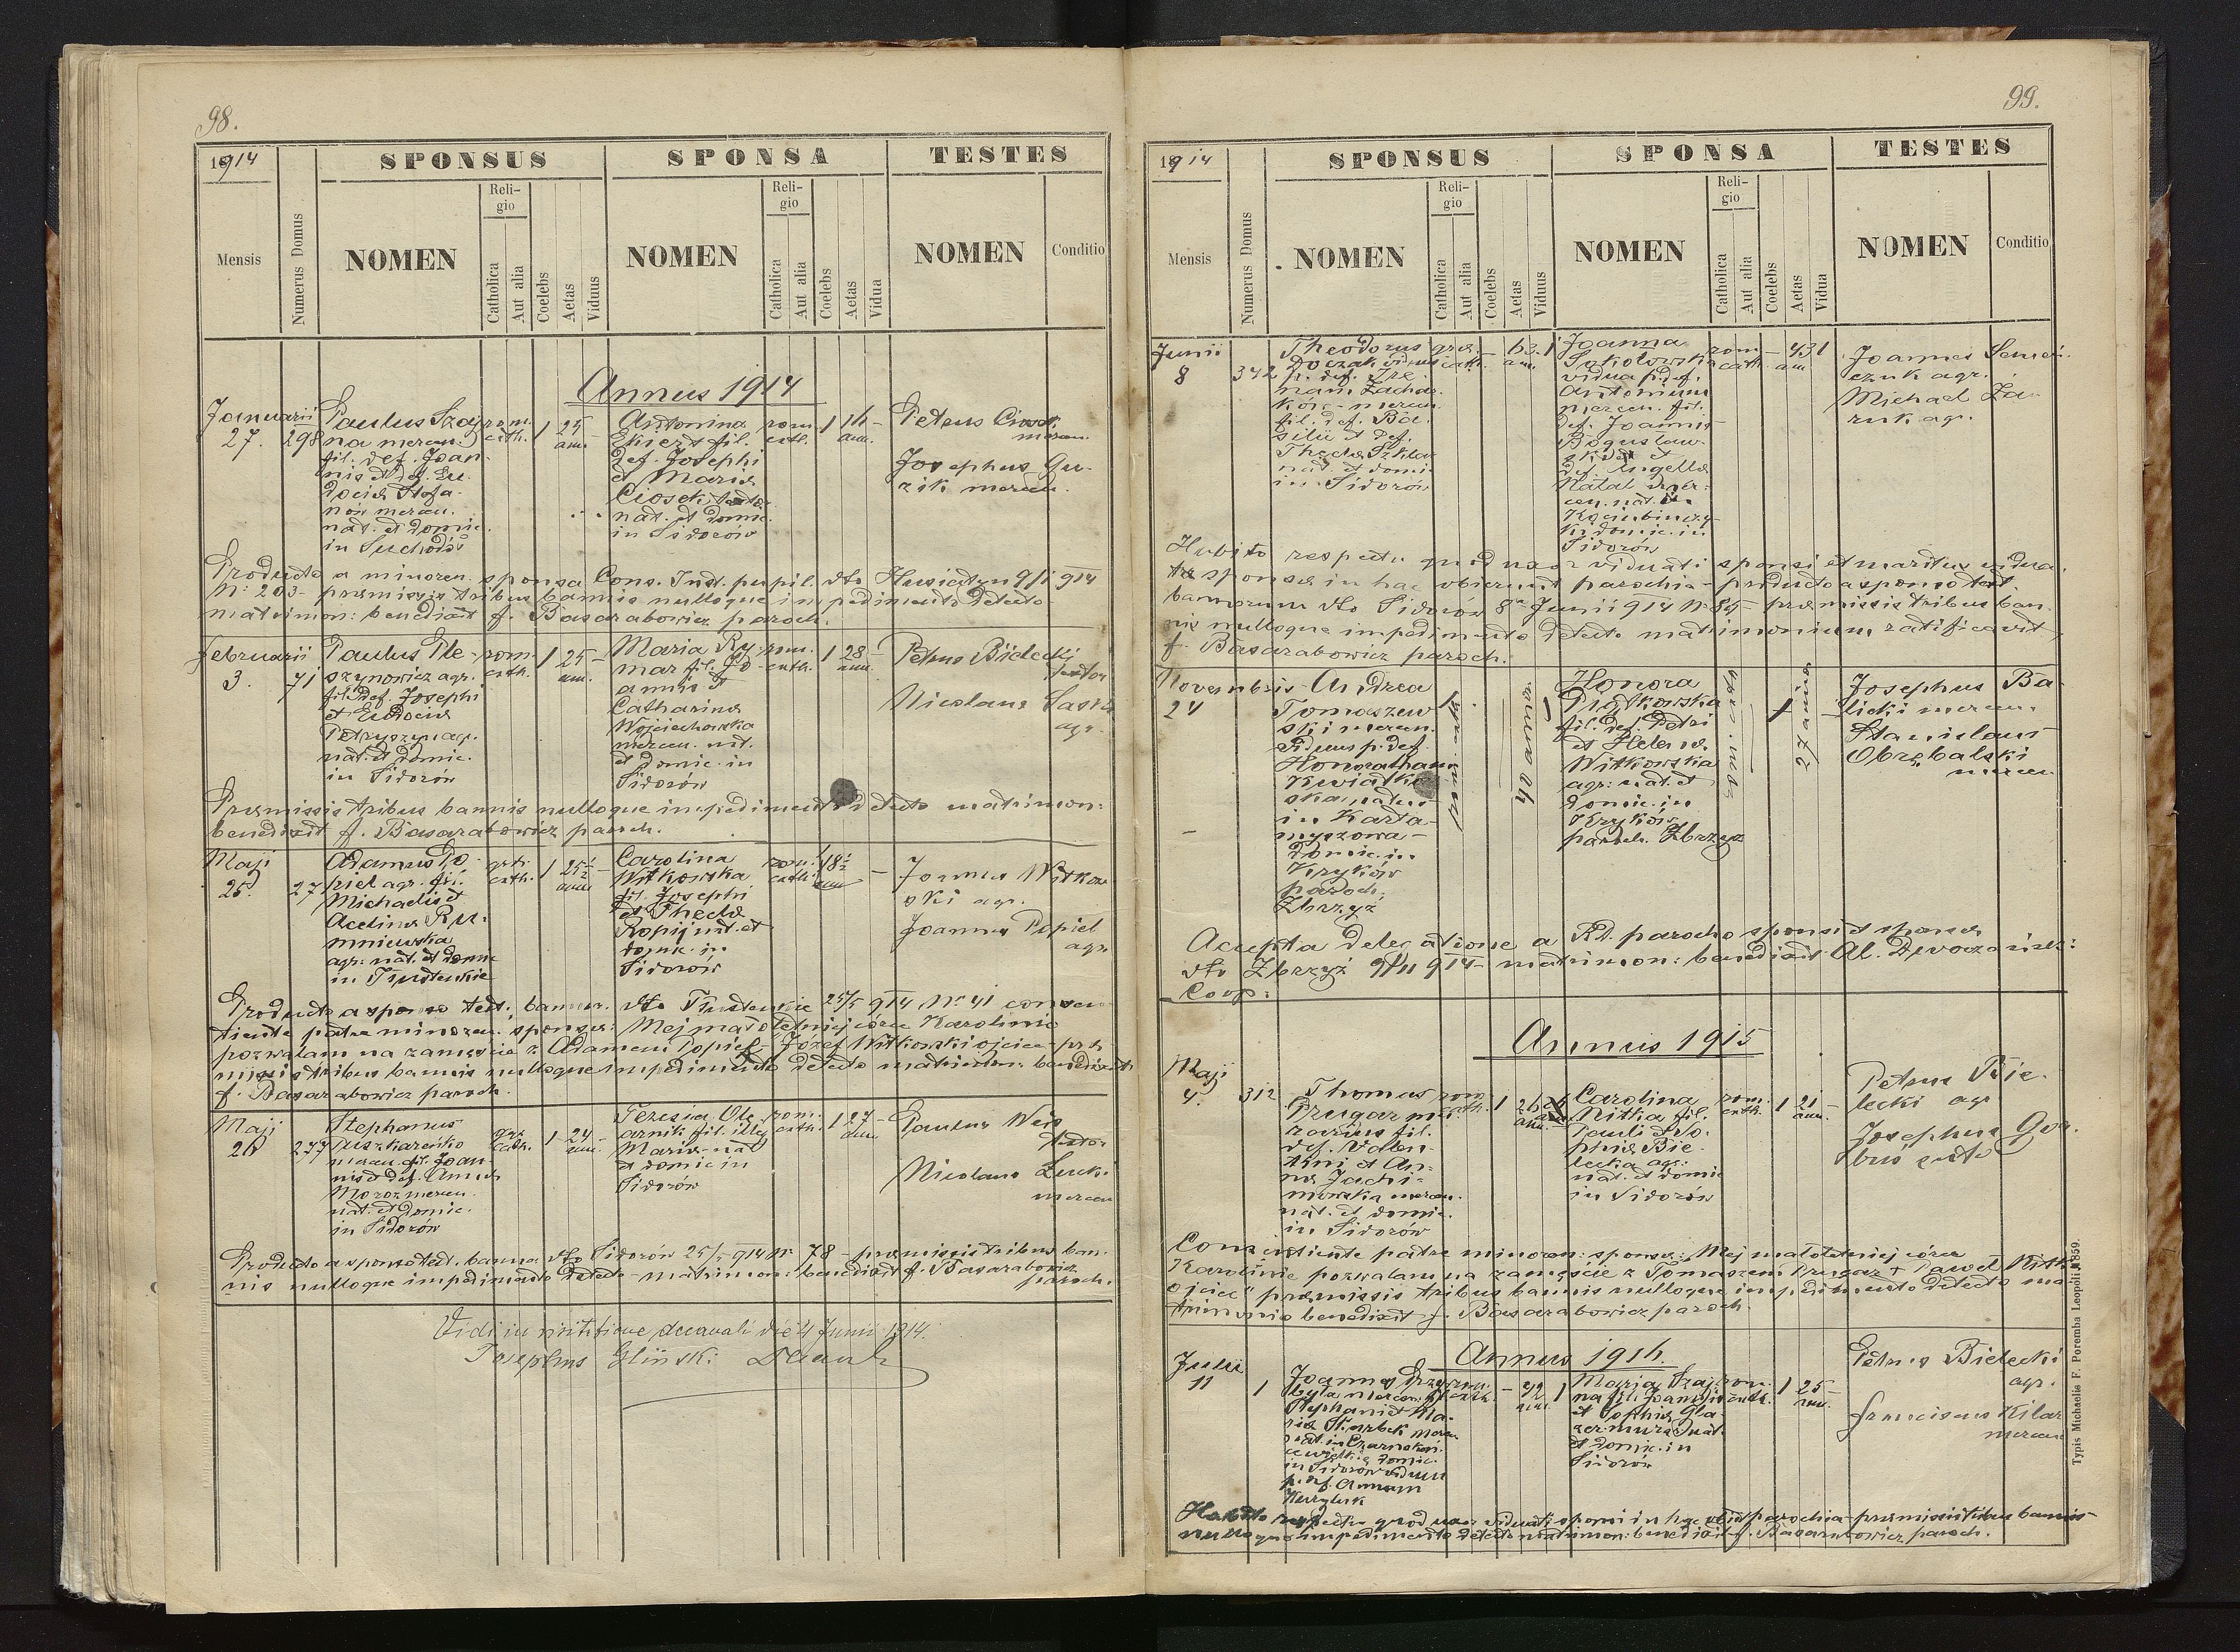 98.
1914
SPONSUS
SPONSA
TESTES
Mensis
Numerus Domus
NOMEN
Reli-
gio
Catholica
Aut alia
Coelebs
Aetas
Viduus
NOMEN
Reli-
gio
Catholica
Aut alia
Coelebs
Aetas
Vidua
NOMEN
Conditio
Annus 1914
Januarii
27.
298
Paulus Szay
na mercen.
fil. def. Joan
nis et def. Eu
dociæ Stefa
nów mercen.
nat. et domic.
in Suchodół
rom.
cath.
1
25
ann.
Antonina
Ekiert fil.
def. Josephi
et Mariæ
Ciosek
nat. et domic.
in Sidorów
rom.
cath.
1
16
ann.
Petrus Ciosek
mercen.
Josephus Gu-
zik mercen.
Producto a minoren. sponsa Cons. Jud. pupil. dto Husiatyn 9/1 914
Nr 203 - præmissis tribus bannis nulloque impedimento detecto
matrimon: benedixit f. Basarabowicz paroch.
Februarii
3.
71
Paulus Ple-
szynowicz agr.
fil. def. Josephi
et Eudociæ
Petryszyn agr.
nat. et domic.
in Sidorów
rom.
cath.
1
25
ann.
Maria Ry-
mar fil. Jo-
annis et
Catharinæ
Wojciechowska
mercen. nat.
et domic. in
Sidorów
rom.
cath.
1
28
ann.
Petrus Bielecki
Nicolaus Saska
agr.
Præmissis tribus bannis nulloque impedimento detecto matrimon:
benedixit f. Basarabowicz paroch.
Maji
25
27
Adamus Po-
piel agr. fil.
Michaelis et
Acelinæ Ru-
mniewska
agr. nat. et domic
in Trudenkie
gr.
cath.
1
25 1/2
ann
Carolina
Witkowska
fil. Josephi
et Theclæ
Kopij nat. et
domic. in
Sidorów
rom.
cath.
1
18 1/2
ann
Joannes Witkow
ski agr.
Joannes Popiel
agr
Producto a sponso test. bannor. dto 25/5 914 Nr 41 consen
tiente patre minoren. sponsæ: Mej małoletniej córce Karolinie
pozwalam na zamęście z Adamem Popiel Józef Witkowski ojciec præ
missis tribus bannis nulloque impedimento detecto matrimon: benedixit
f. Basarabowicz paroch.
Maji
26
277
Stephanus
Juszkarenko
mercen. fil. Joan
nis et def. Annæ
Moroz mercen.
nat. et domic.
in Sidorów
gr.
cath.
1
24
ann.
Teresia Ole
arnik fil. illeg
Mariæ nat
et domic in
Sidorów
rom.
cath.
1
27
ann.
Paulus Weis
Nicolaus Zucki
mercen
Producto a sponso test. bannor. dto Sidorów 25/5 914 Nr 78 - præmissis tribus ban-
nis nulloque impedimento detecto matrimon: benedixit f. Basarabowicz
paroch.
Vidi in visitatione decanali die 4 Junii 1914.
Josephus Gliński
99.
1914
SPONSUS
SPONSA
TESTES
Mensis
Numerus Domus
NOMEN
Reli-
gio
Catholica
Aut alia
Coelebs
Aetas
Viduus
NOMEN
Reli-
gio
Catholica
Aut alia
Coelebs
Aetas
Vidua
NOMEN
Conditio
Junii
8
342
Theodorus
Doczak viduus
p. def. Ire
nam Zacha
ków - mercen.
fil. def. Ba-
silii et def.
Theclæ Szkla
nat. et domi
in Sidorów
græ.
cath.
-
63
ann.
1
Joanna
Sokołowska
vidua p. def.
Antonium
mercen. fil.
def. Joannis
Bogusław-
ski et
def. Angellæ
Natal mer-
cen. nat. in
Kociubińczy-
ki domic. in
Sidorów
rom
cath.
-
43
ann
1
Joannes Semeń-
czuk agr.
Michael Ża-
ruk agr.
Habito respectu quod uxor viduati sponsi et maritus vidua
tæ sponsæ in hac obierunt parochia - producto a sponso test.
bannorum dto Sidorów 8 Junii 914 Nr 85 - præmissis tribus ban-
nis nulloque impedimento detecto matrimonium ratificavit
f. Basarabowicz paroch.
Novembris
24
Andrea
Tomaszew
ski mercen.
viduus p. def.
Honoratham
Kwiatkow-
ska natus
in Karta-
myszowa -
domic. in
Kryków
paroch.
Zbrzyż
rom. cath.
40 annor.
1
Honora
Piątkowska
fil. def. Petri
et Helenæ
Witkowska
agr. nat. et
domic. in
Kryków
paroch. Zbrzyż
rom. cath.
1
27 annor
Josephus Ba-
licki mercen.
Stanislaus
Obrębalski
mercen
Accepta delegatione a Rd. parocho sponsi et sponsæ
dto Zbrzyż 9/11 914 - matrimon: benedixit Al.
Coop:
Annus 1915
Maji
4.
312
Thomas
Drugar mu-
rarius fil.
def. Valen-
tini et An-
næ Jachi-
mowska mercen.
nat. et domic.
in Sidorów
rom
cath.
1
26
ann.
Carolina
Nitka fil.
Pauli et So-
phiæ Bie-
lecka agr.
nat. et domic
in Sidorów
rom.
cath.
1
21
ann.
Petrus Bie-
lecki agr
Josephus Gor-
buś
Consentiente patre minoren: sponsæ: Mej małoletniej córce
Karolinie pozwalam na zamęście z Tomaszem Drugar + Paweł Nitka
ojciec" præmissis tribus bannis nulloque impedimento detecto ma-
trimonio benedixit f. Basarabowicz paroch.
Annus 1916.
Julii
11
1
Joannes Przy
była mercen. fil.
Stephani et Ma-
riæ Skarbek merc.
nat. in Czarnokoń-
ce wielkie domic.
in Sidorów viduus
p. def. Annam
rom.
cath.
-
42
ann.
1
Maria Szaj-
na fil. Joannis
et Sophiæ Gla
zermura nat.
et domic. in
Sidorów
rom.
cath.
1
25
ann.
Petrus Bielecki
agr.
Franciscus Kilar
mercen
Habito respectu quod uxor viduati sponsi in hac obiit parochia - præmissis tribus bannis
nulloque impedimento detecto matrimon: benedixit f. Basarabowicz paroch.
Typis Michaelis F. Poremba Leopoli 1859.